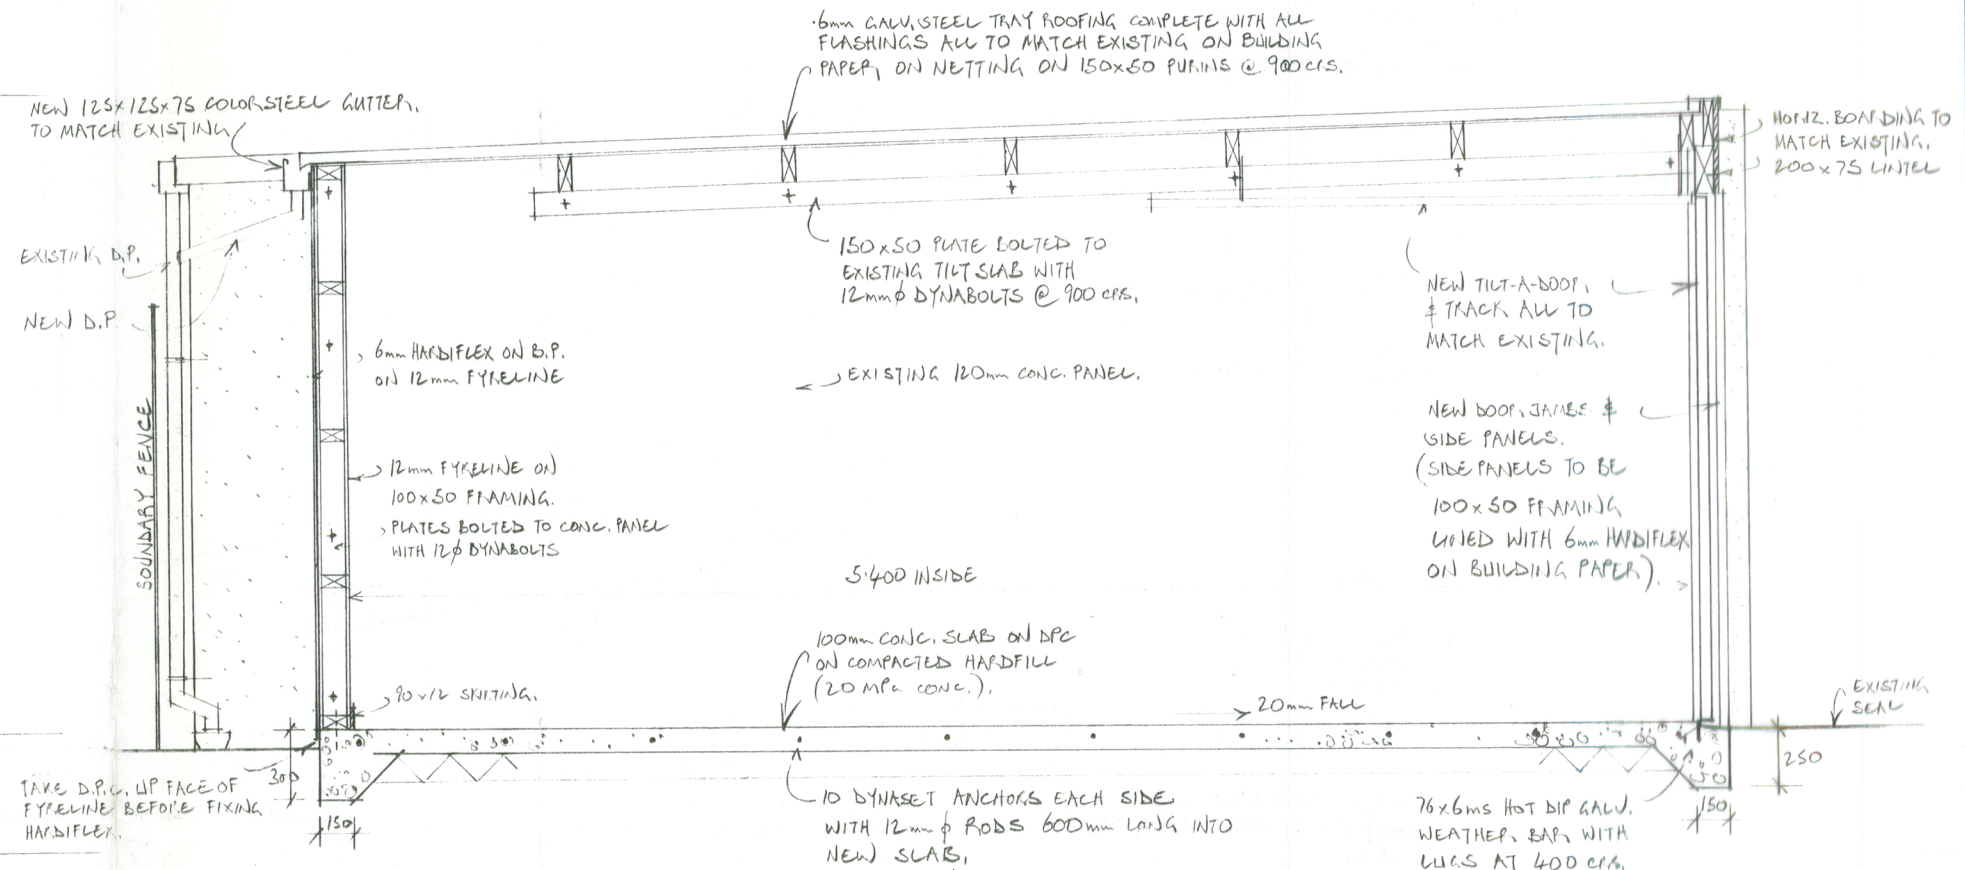 .6mm GALV. STEEL TRAY ROOFING COMPLETE WITH ALL
FLASHINGS ALL TO MATCH EXISTING ON BUILDING
PAPER, ON NETTING ON 150x50 PURINS @ 900 CRS.
NEW 125x125x75 COLORSTEEL GUTTER.
TO MATCH EXISTING
HORIZ. BOARDING TO
MATCH EXISTING.
200x75 LINTEL
EXISTING D.P.
NEW D.P.
150x50 PLATE BOLTED TO
EXISTING TILT SLAB WITH
12mmφ DYNABOLTS @ 900 CRS.
NEW TILT-A-DOOR,
& TRACK ALL TO
MATCH EXISTING.
6mm HARDIFLEX ON B.P.
ON 12mm FYRELINE
EXISTING 120mm CONC. PANEL.
BOUNDARY FENCE
NEW DOOR, JAMBS &
SIDE PANELS.
(SIDE PANELS TO BE
100x50 FRAMING
LINED WITH 6mm HARDIFLEX
ON BUILDING PAPER).
12mm FYRELINE ON
100x50 FRAMING.
PLATES BOLTED TO CONC. PANEL
WITH 12φ DYNABOLTS
5.400 INSIDE
100mm CONC. SLAB ON DPC
ON COMPACTED HARDFILL
(20 MPa CONC.).
90x12 SKIRTING.
20mm FALL
EXISTING
SEAL
300
250
TAKE D.P.C. UP FACE OF
FYRELINE BEFORE FIXING
HARDIFLEX.
150
10 DYNASET ANCHORS EACH SIDE
WITH 12mmφ RODS 600mm LONG INTO
NEW SLAB.
76x6ms HOT DIP GALV.
WEATHER BAR WITH
LUGS AT 400 CRS.
150